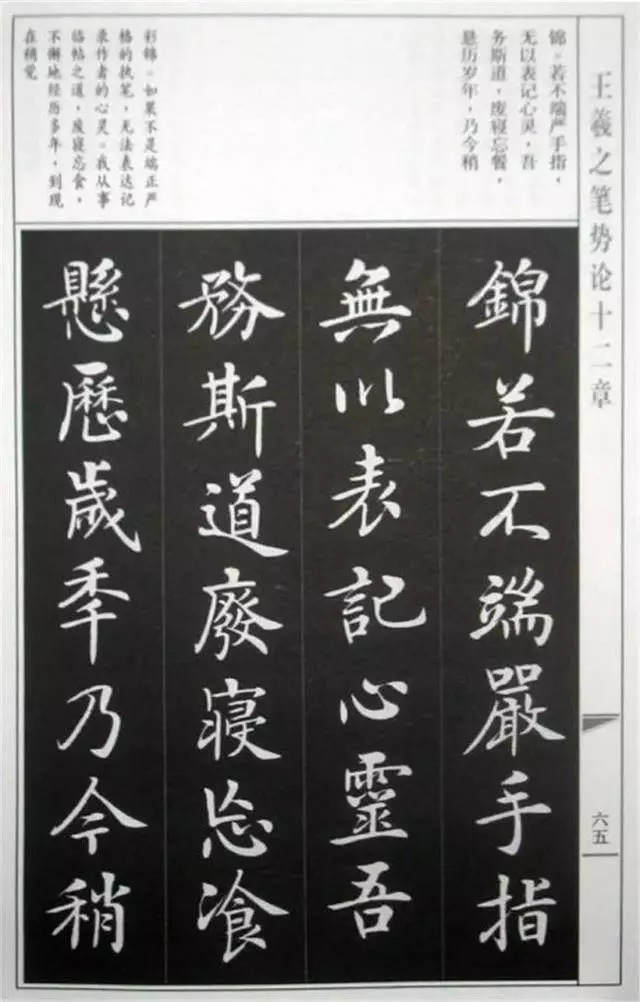 王羲之笔势论十二章
六五
锦。若不端严手指，
无以表记心灵，吾
务斯道，废寝忘餐，
悬历岁年，乃今稍
彩锦。如果不是端正严
格的执笔，无法表达记
录作者的心灵。我从事
临帖之道，废寝忘食，
不懈地经历多年，到现
在稍觉
錦若不端嚴手指
無以表記心靈吾
務斯道廢寢忘飡
懸歷歲季乃今稍